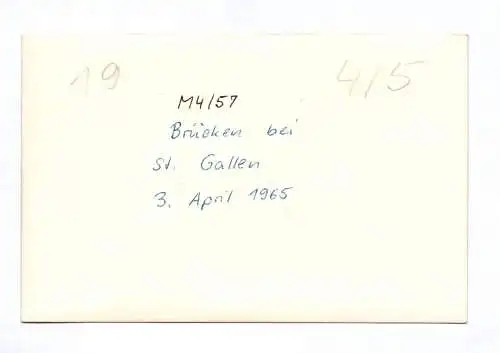 19 4/5
M4/57
Brücken bei
St. Gallen
3. April 1965